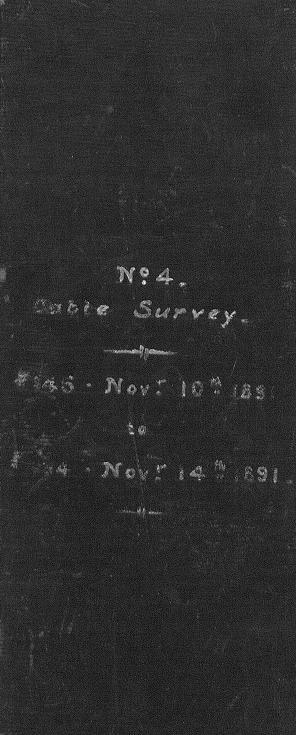 No. 4.
Cable Survey.
Novr. 10th 1891
to
Novr. 14th 1891.